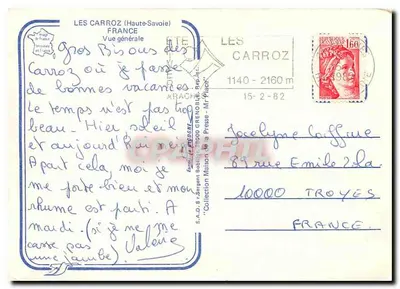 LES CARROZ (Haute-Savoie)
FRANCE
Vue générale
Gros Bisous des
Carroz où je passe
de bonnes vacances
Le temps n'est pas très
beau. Hier, soleil
et aujourd'hui
Apart cela, moi je
me porte bien et mon
rhume est parti. A
mardi. (si je ne me
casse pas
une jambe). Valérie
LES
CARROZ
1140-2160 m
15-2-82
1,60
Jocelyne Coiffure
89 rue Emile Zola
10000 TROYES
FRANCE.
"Collection Maison de la Presse - Mr